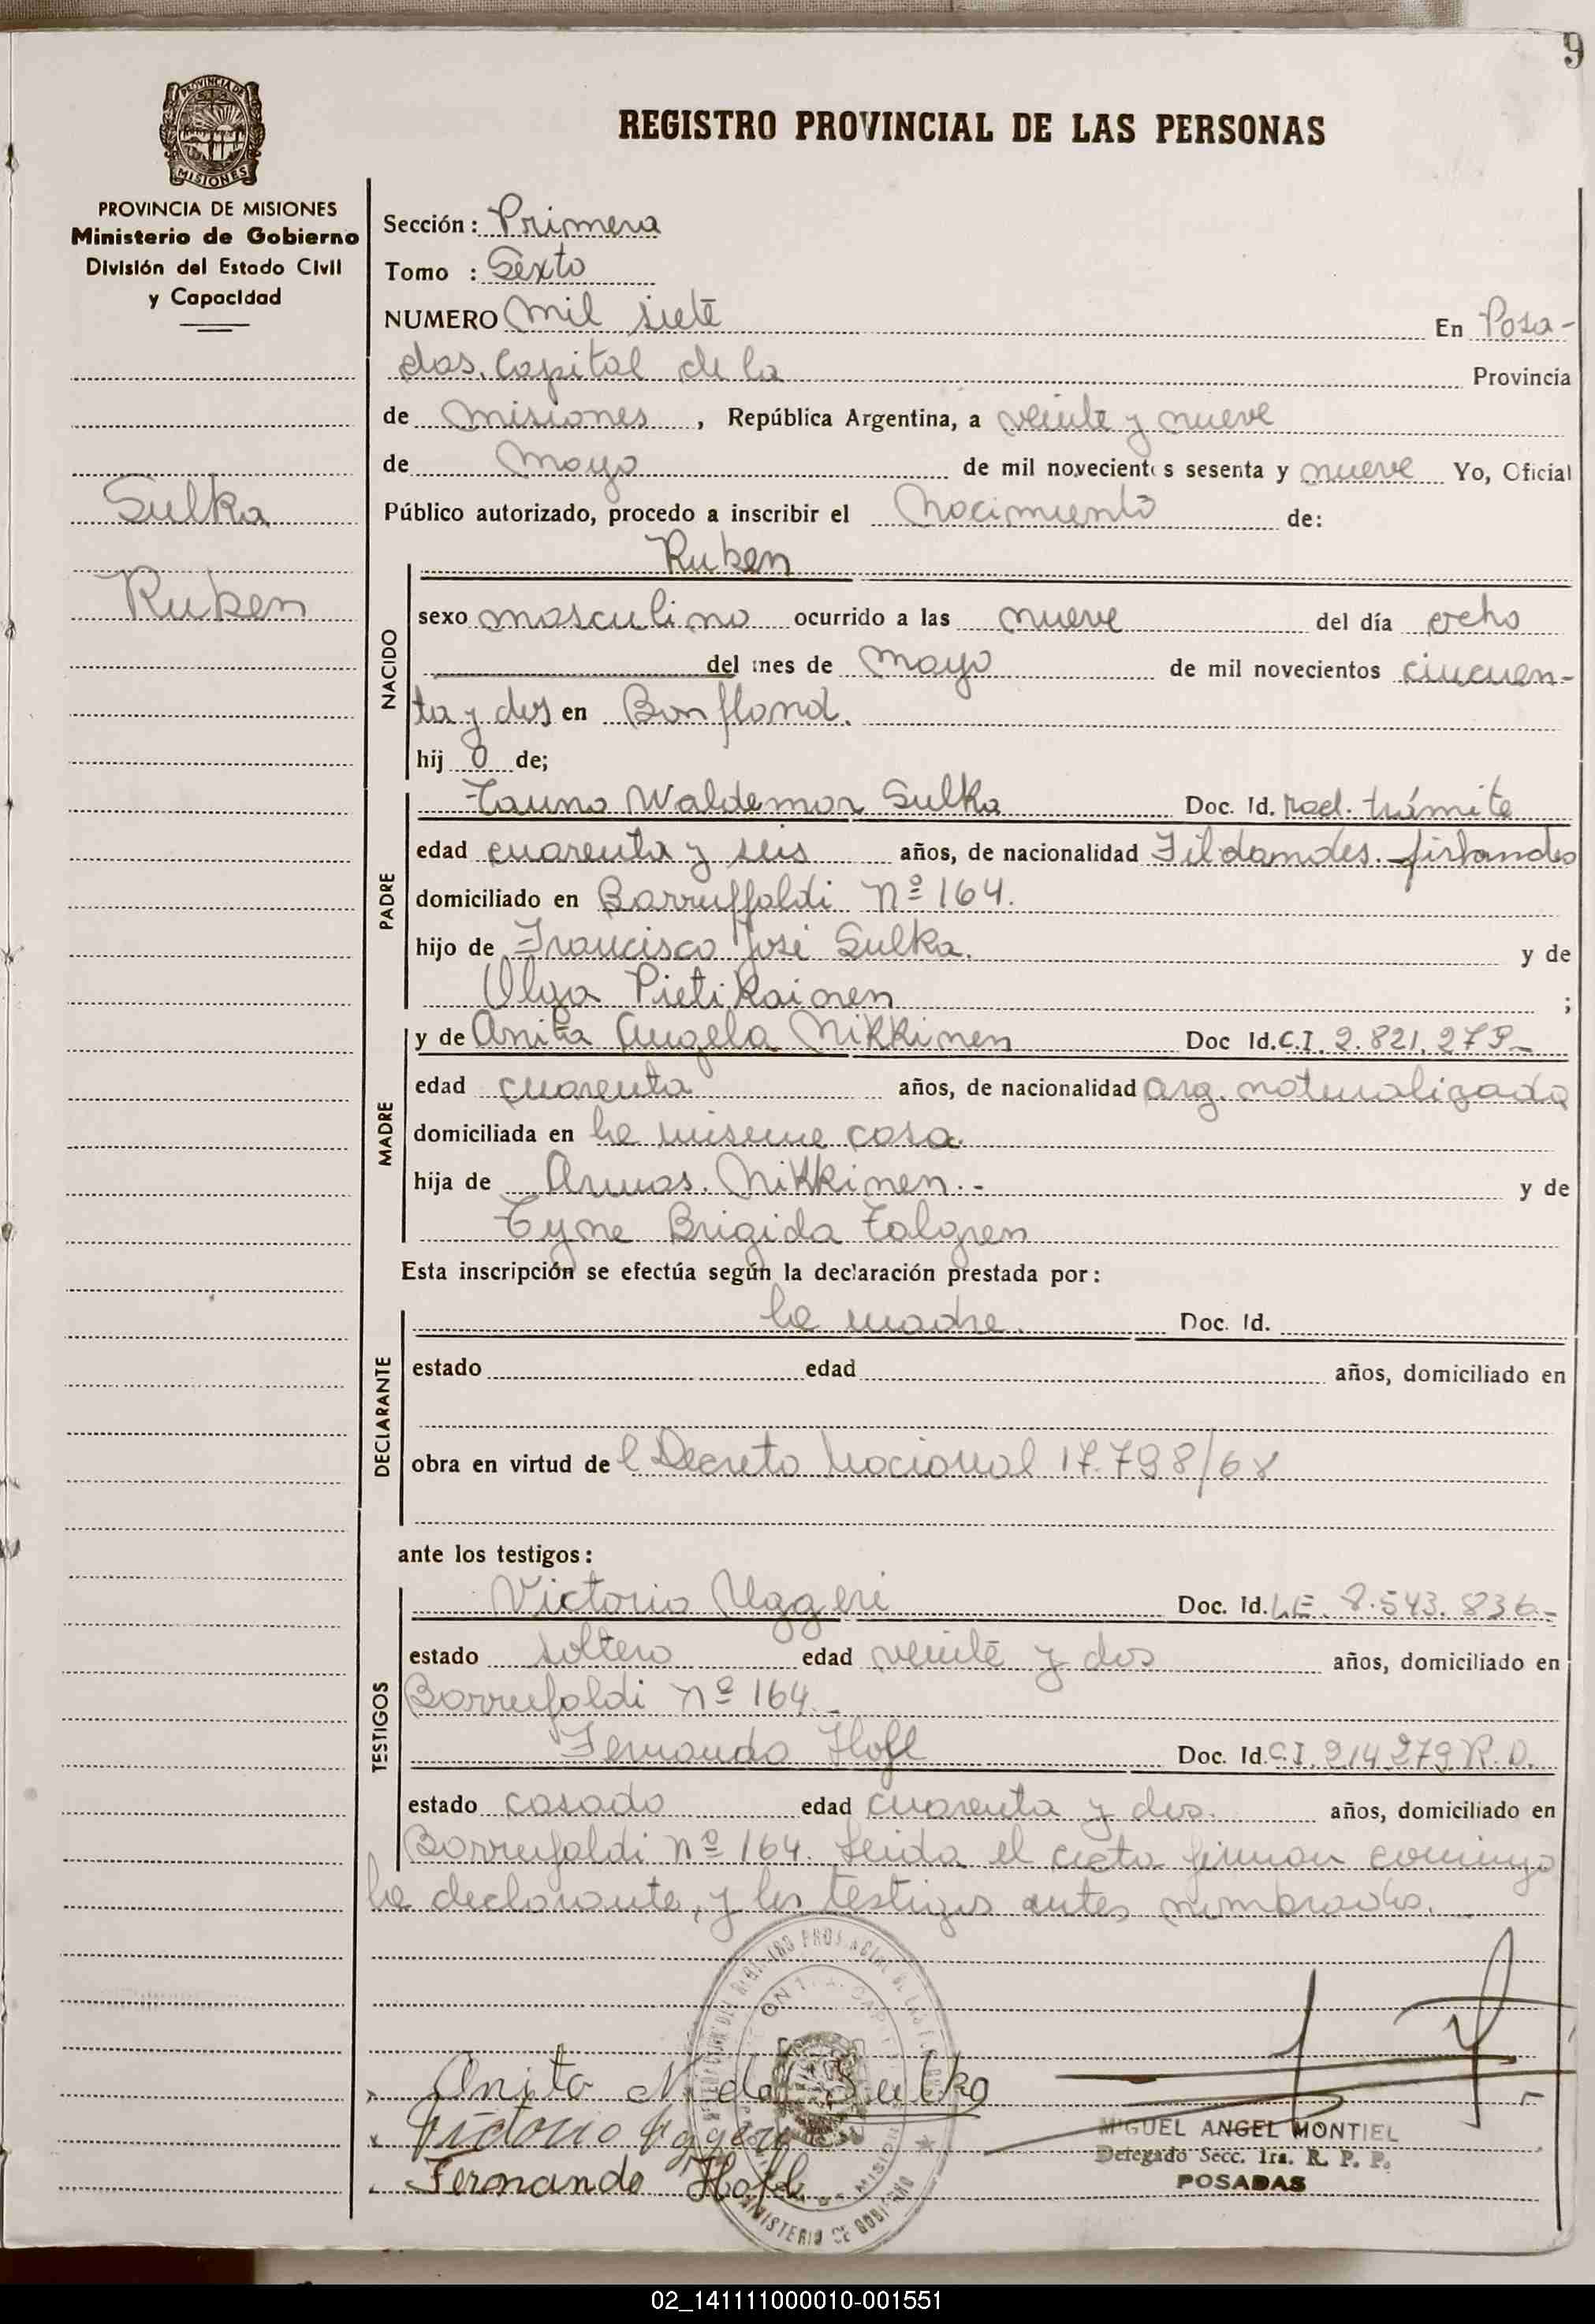 9
PROVINCIA DE MISIONES
REGISTRO PROVINCIAL DE LAS PERSONAS
PROVINCIA DE MISIONES
Ministerio de Gobierno
División del Estado Civil
y Capacidad
Sulka
Ruben
Sección: Primera
Tomo : Sexto
NUMERO mil siete En Posa-
das. Capital de la Provincia
de Misiones, República Argentina, a veinte y nueve
de Mayo de mil novecientos sesenta y nueve Yo, Oficial
Público autorizado, procedo a inscribir el Nacimiento de:
NACIDO
Ruben
sexo masculino ocurrido a las nueve del día ocho
del mes de Mayo de mil novecientos cincuen-
ta y dos en Bonfland.
hij o de;
PADRE
Tauno Waldemar Sulka Doc. Id. Rad. trámite
edad cuarenta y seis años, de nacionalidad
domiciliado en Barruffaldi Nº 164.
hijo de Francisco José Sulka. y de
Olga Pietikainen ;
MADRE
y de Anita Angela Nikkinen Doc Id. C.I. 2.821.
edad cuarenta años, de nacionalidad arg. naturalizada
domiciliada en la misma casa.
hija de Armas. Nikkinen.- y de
Tyne Brigida Talgren
Esta inscripción se efectúa según la declaración prestada por:
DECLARANTE
la madre. Doc. Id.
estado edad años, domiciliado en
obra en virtud de l Decreto Nacional 17.798/68
ante los testigos:
TESTIGOS
Victorio Uggeri Doc. Id. L.E. 8.543.836.-
estado soltero edad veinte y dos años, domiciliado en
Barrufaldi Nº 164.-
Fernando Hofl Doc. Id. C.I. 214.279 R.D.
estado casado edad cuarenta y dos. años, domiciliado en
Barrufaldi Nº 164. Leida el acta firman conmigo
la declarante, y los testigos antes nombrados.
Anita N. de Sulka
Victorio Uggeri
Fernando Hofl
MIGUEL ANGEL MONTIEL
Delegado Secc. 1ra. R. P. P.
POSADAS
MINISTERIO DE GOBIERNO
02_141111000010-001551